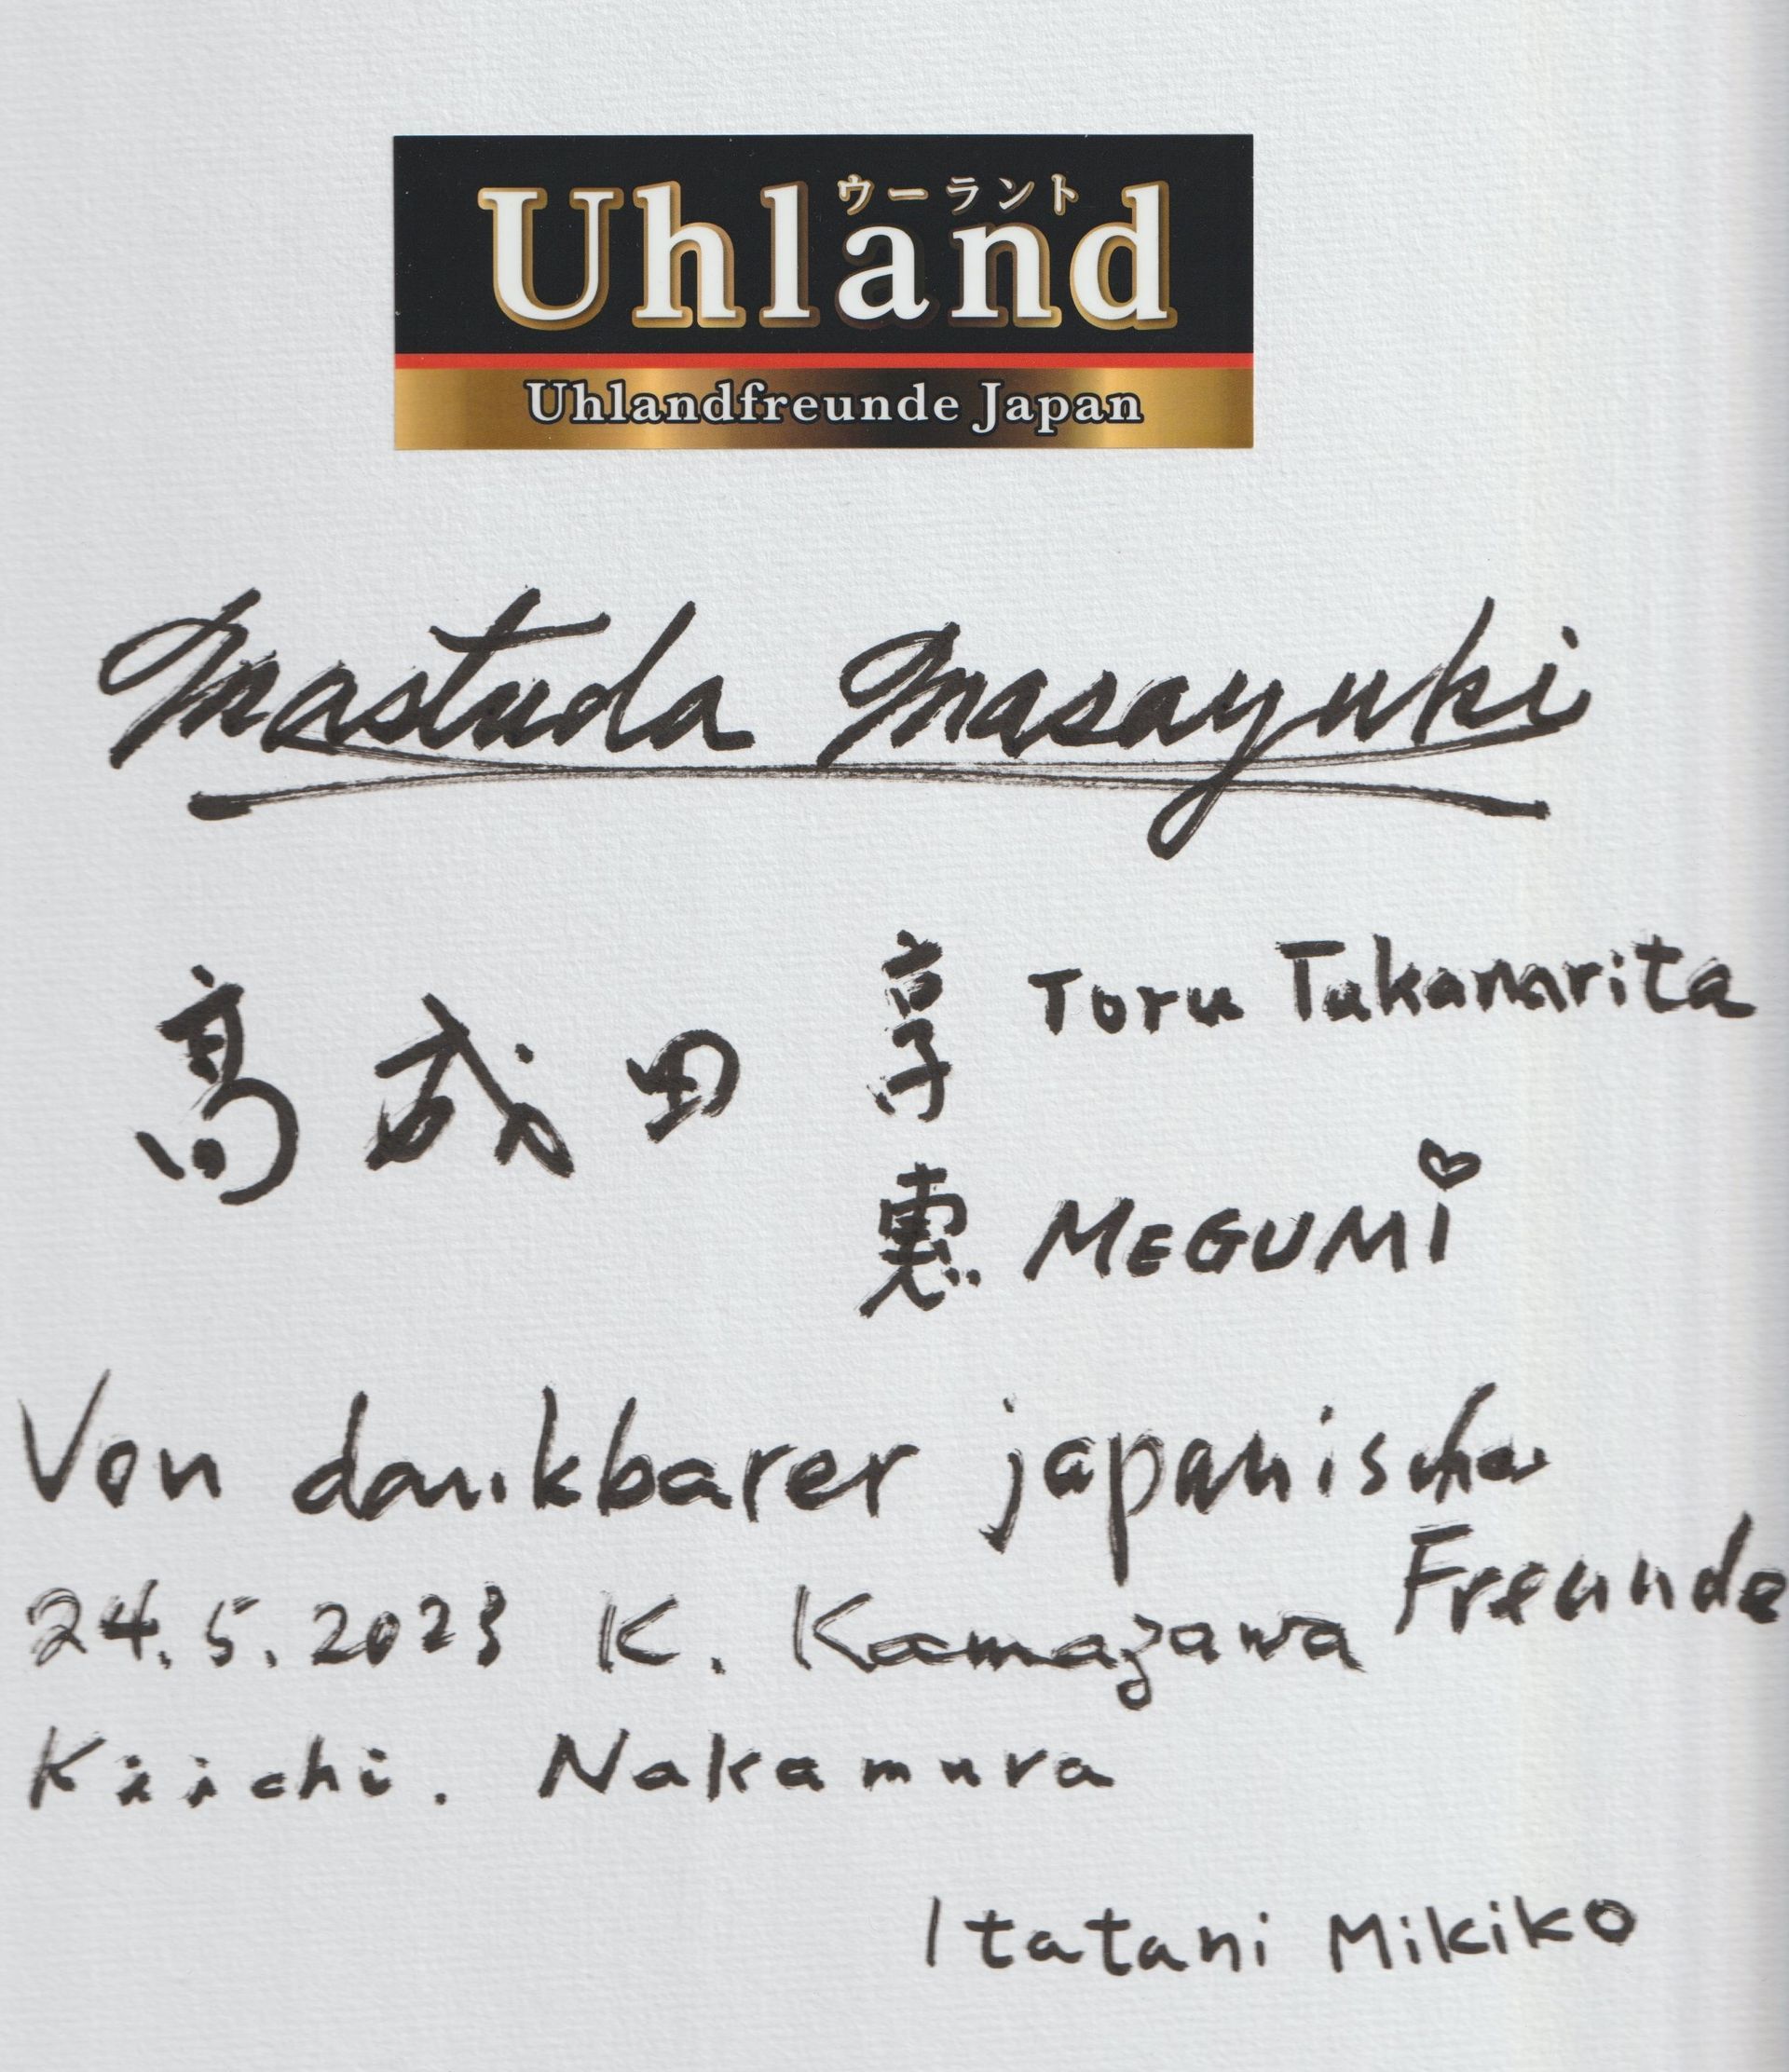 ウーラント
Uhland
Uhlandfreunde Japan
Mastuda Masayuki
高成田 享 Toru Takanarita
恵 MEGUMi
Von dankbarer japanischer
Freunde
24.5.2023 K. Kamazawa
Kiichi. Nakamura
Itatani Mikiko